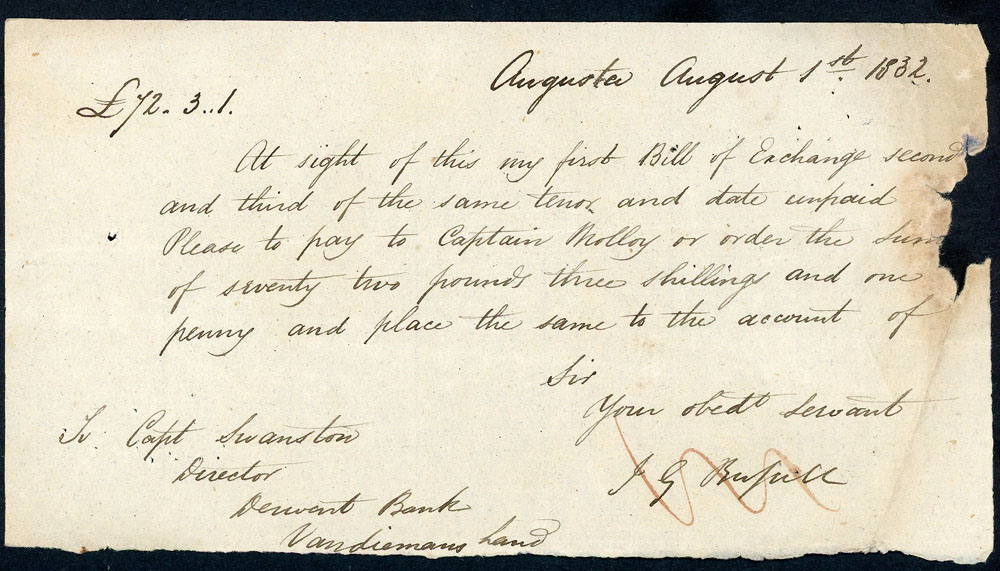 Augusta August 1st. 1832.
£72. 3..1.
At sight of this my first Bill of Exchange second
and third of the same tenor and date unpaid
Please to pay to Captain Molloy or order the sum
of seventy two pounds three shillings and one
penny and place the same to the account of
Sir
Your obedt servant
J G Bussell
To Capt Swanston
Director
Derwent Bank
Vandiemans Land